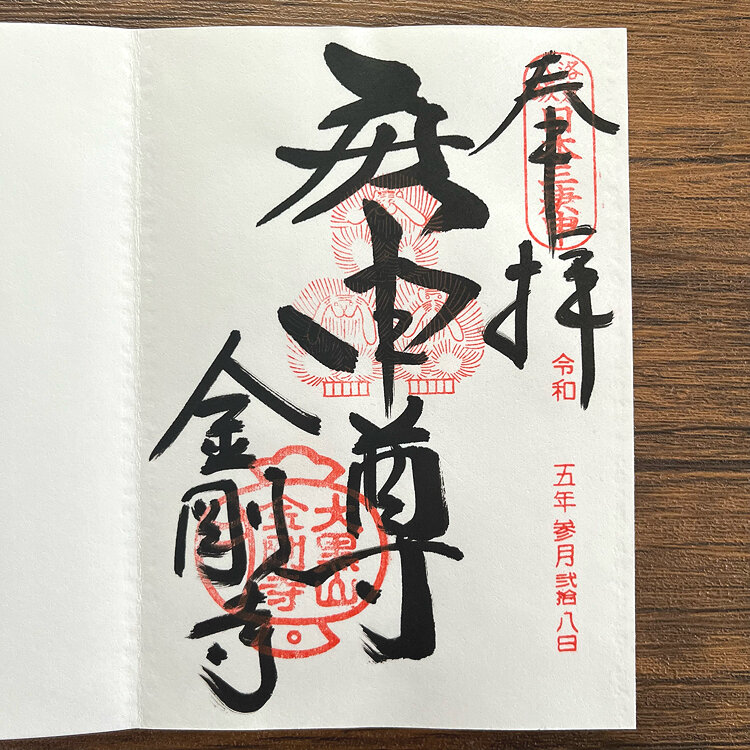 奉拝
日本三庚申
令和 五年 参月 弐拾八日
庚申尊
金剛寺
大黒山
金剛寺